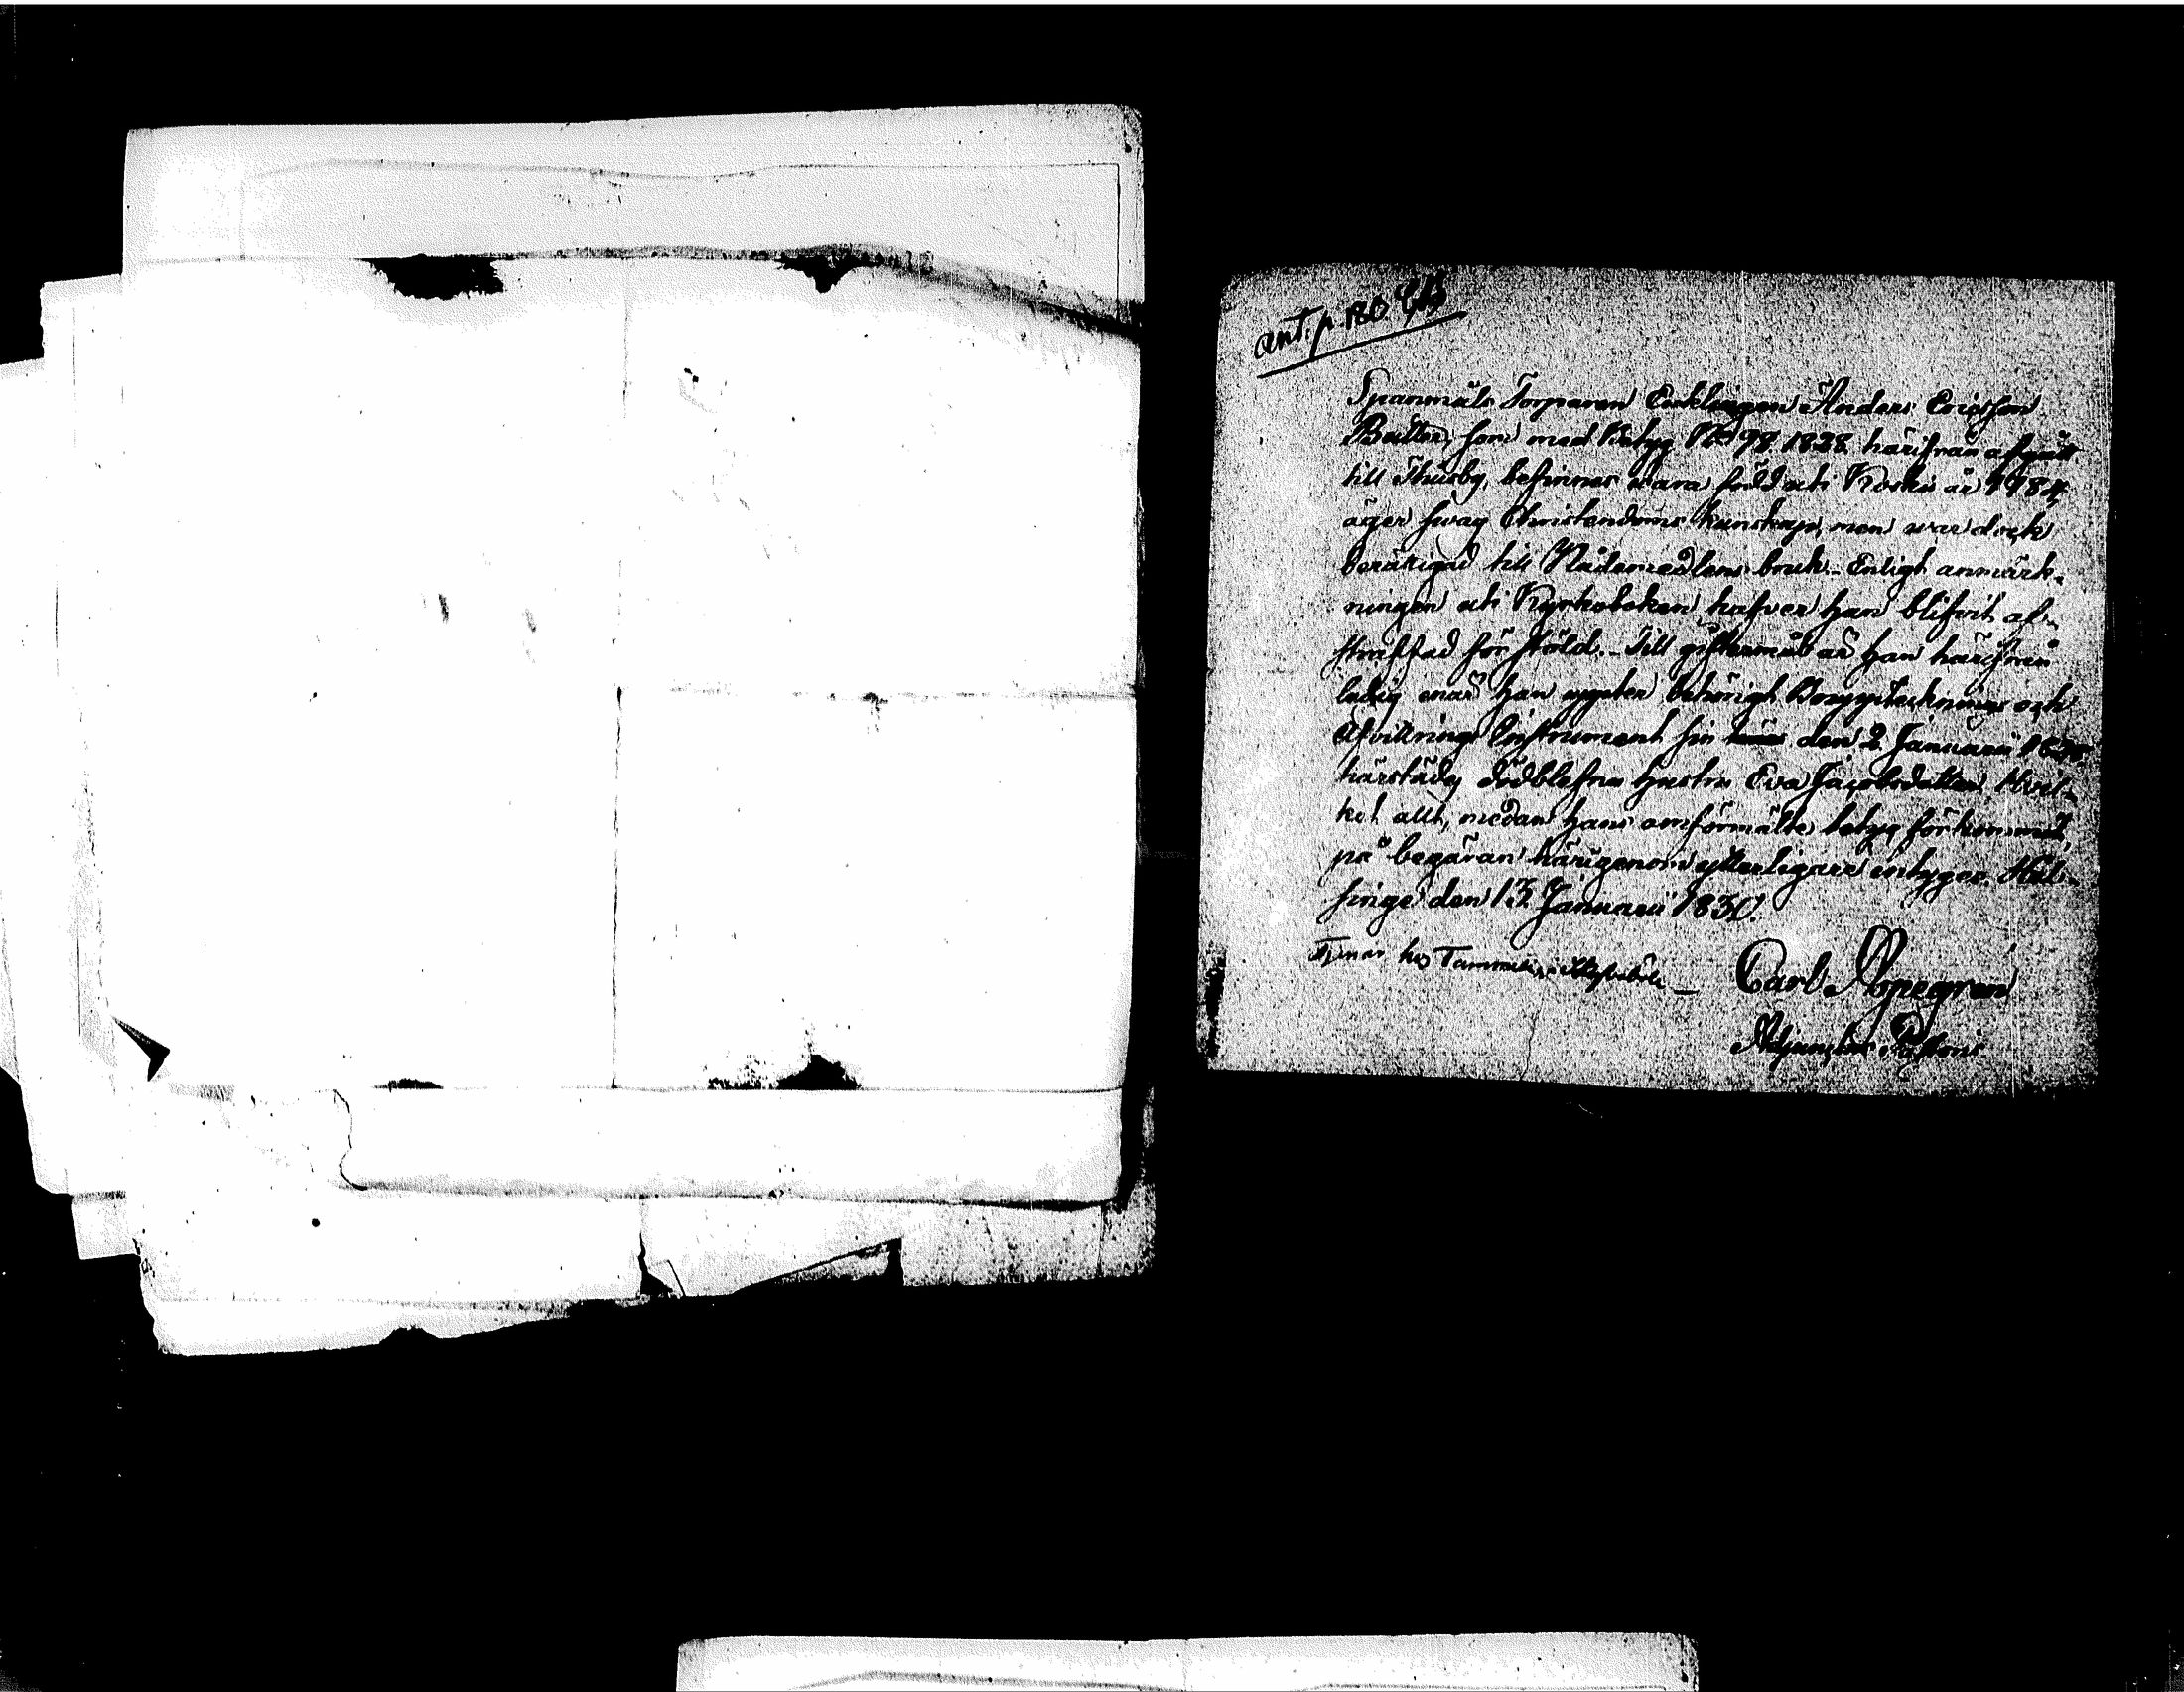 ant. p. 180
Spanmåls Torparen Enklingen Anders Ericsson
som med Betyg No 98 1828 härifrån afgått
till Thusby, befinnes vara född uti Koskis år 1784,
äger swag Christendoms kunskap, men war dock
berätigad till Nådemedlens bruk. Enligt anmärk-
ningen uti Kyrkoboken hafver han blifvit af-
straffad för stöld. Till giftermål är han härifrån
ledig enär han uppter behörigt Bouppteckning och
Afvittrings Instrument sin den 2 Januarii
härstädes dödblefna hustru Eva Jacobsdotter. Hvil-
ket allt, medan hans omförmälte betyg förkommit,
på begäran härigenom ytterligare intygas. Hel-
singe den 13 Januarii 1830.
Tjenar hos
Carl Alopegren
Adjunctus Pastoris